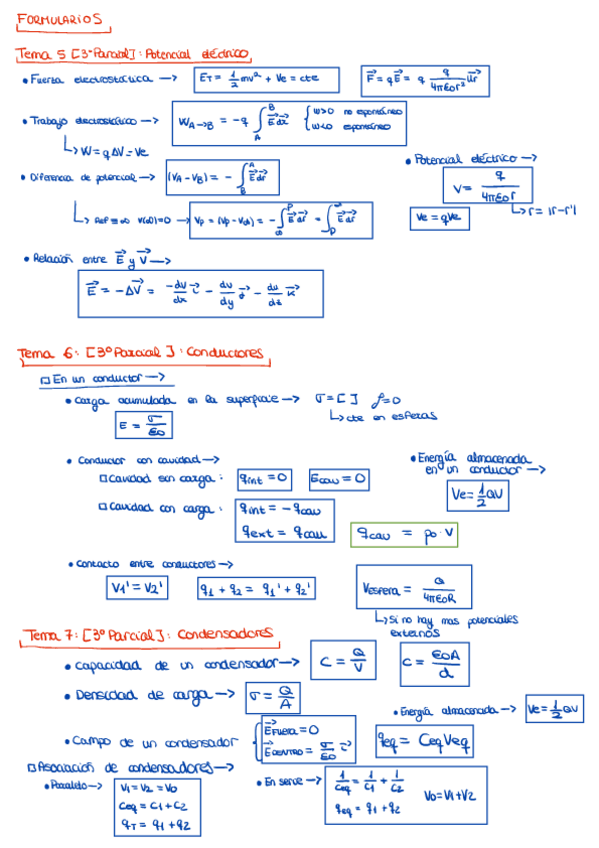 FORMULARIOS
Tema 5 [3ºParcial]: Potencial eléctrico
• Fuerza electrostática → E_T = 1/2 mv² + Ve = cte
F⃗ = qE⃗ = q q/4πε₀r² u⃗r
• Trabajo electrostático → W_A→B = -q ∫_A^B E⃗ dr⃗ { w>0 no espontáneo
w<0 espontáneo
↳ W = q ΔV = Ve
• Potencial eléctrico →
V = q/4πε₀r
↳ r = |r-r'|
Ve = qVe
• Diferencia de potencial → (V_A - V_B) = - ∫_B^A E⃗ dr⃗
↳ Ref ≡ ∞ V(∞)=0 → V_P = (V_P - V_∞) = - ∫_∞^P E⃗ dr⃗ = ∫_P^∞ E⃗ dr⃗
• Relación entre E⃗ y V⃗ →
E⃗ = -ΔV⃗ = -dV/dx i⃗ - dV/dy j⃗ - dV/dz k⃗
Tema 6: [3ºParcial]: Conductores
□ En un conductor →
• Carga acumulada en la superficie → σ = [ ] ρ = 0
↳ cte en esferas
E = σ/ε₀
• Conductor con cavidad →
□ Cavidad sin carga: q int = 0 E cav = 0
□ Cavidad con carga: q int = - q cav
q ext = q cav
q cav = ρ₀ · V
• Energía almacenada
en un conductor →
Ve = 1/2 QV
• Contacto entre conductores →
V1' = V2' q1 + q2 = q1' + q2'
V esfera = Q/4πε₀R
↳ Si no hay mas potenciales
externos
Tema 7: [3ºParcial]: Condensadores
• Capacidad de un condensador → C = Q/V C = ε₀A/d
• Densidad de carga → σ = Q/A
• Energía almacenada → Ve = 1/2 QV
• Campo de un condensador { E⃗ FUERA = 0
E⃗ DENTRO = σ/ε₀ i⃗
q eq = Ceq Veq
□ Asociación de condensadores →
• Paralelo → V1 = V2 = V0
Ceq = C1 + C2
q T = q1 + q2
• En serie → 1/Ceq = 1/C1 + 1/C2
V0 = V1 + V2
q eq = q1 + q2